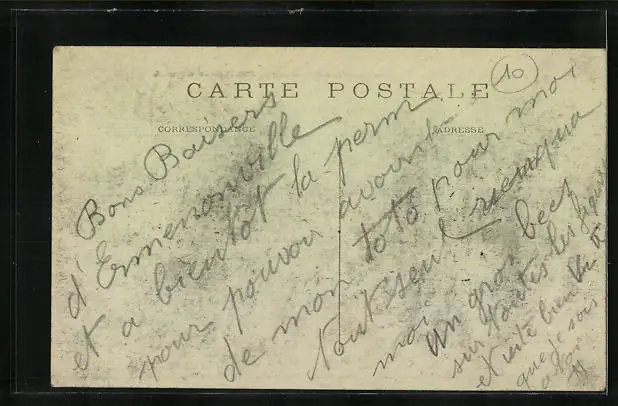 10
CARTE POSTALE
CORRESPONDANCE
ADRESSE
Bons Baisers
d'Ermenonville
et a bientôt la perm
pour pouvoir avoir
de mon toto pour moi
tout seul rien qua
moi un gros bec
sur toutes les
et reste bien
que je sois
a toi